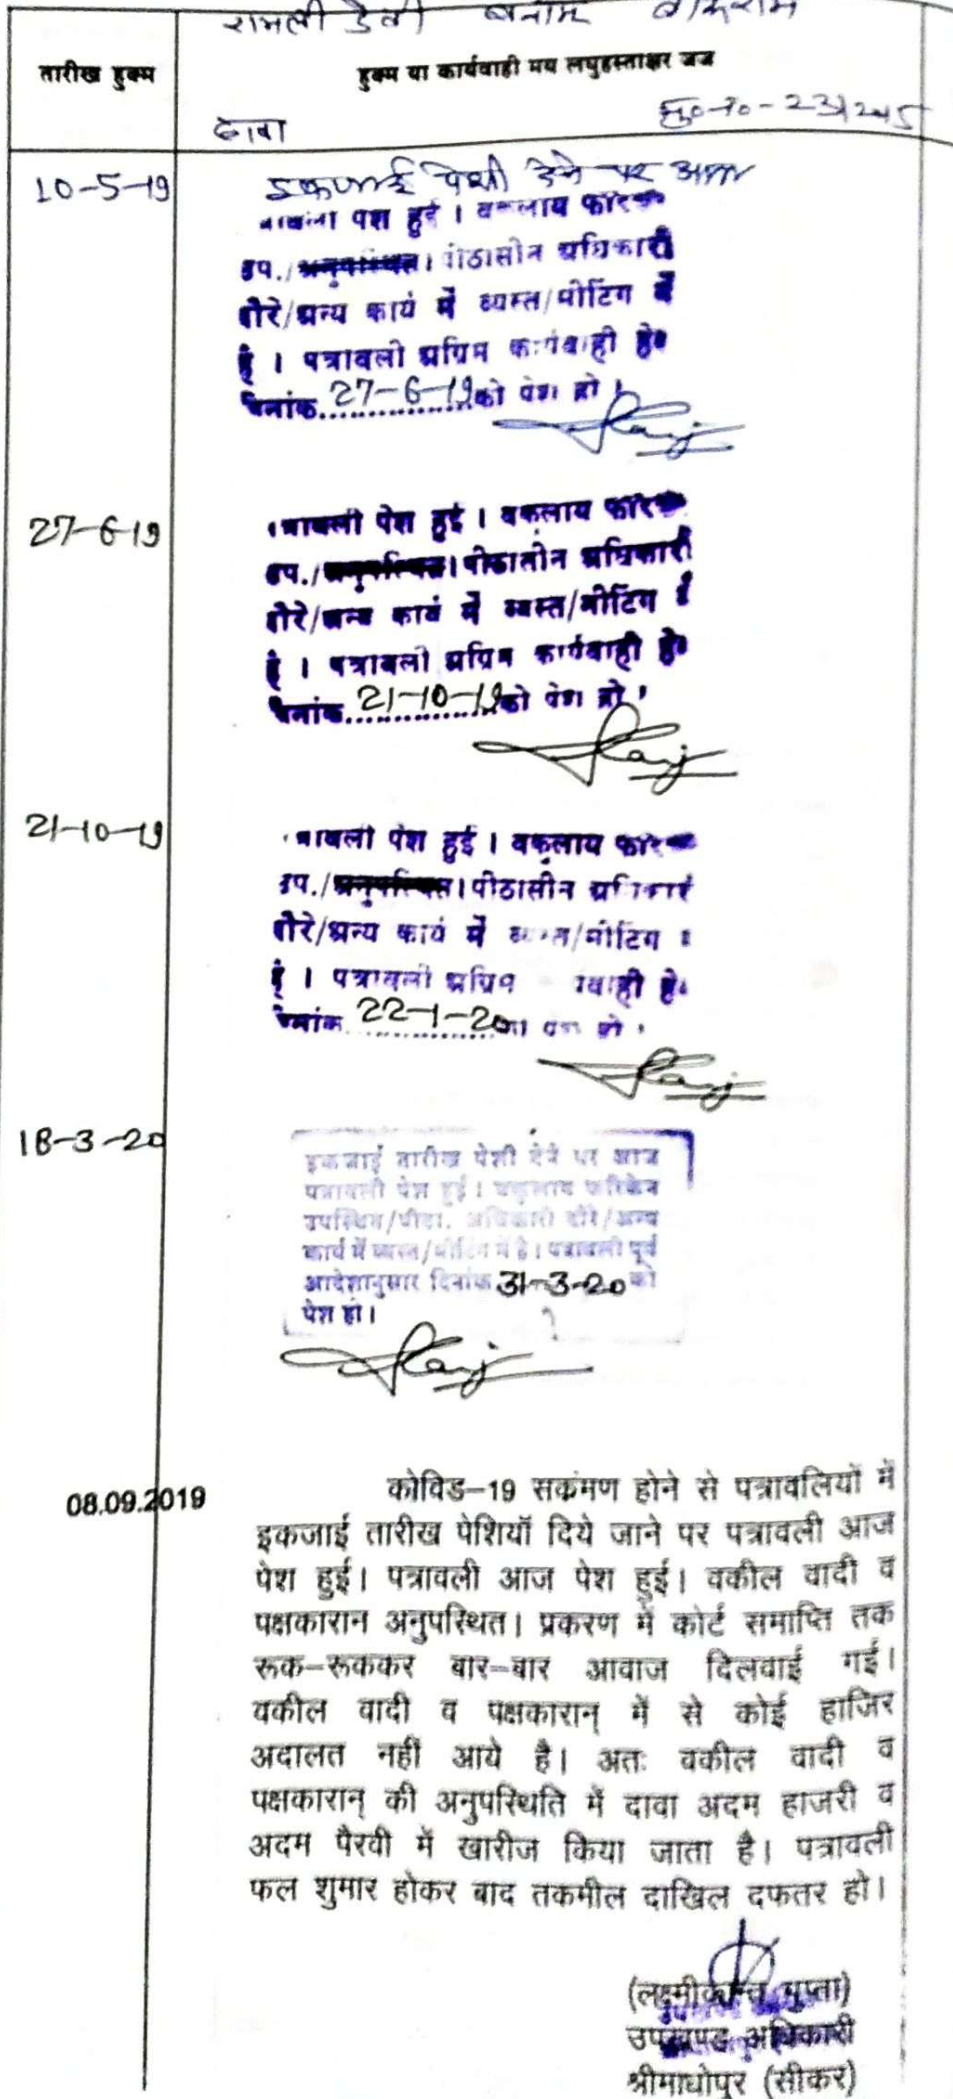 रामली देवी बनाम
तारीख हुक्म
हुक्म या कार्यवाही मय लघुहस्ताक्षर जज
दावा
मु0 न0 - 23/2015
10-5-19
इकजाई पेशी देने पर आज
पत्रावली पेश हुई । वकलाय फरिकेन
उप./अनुपस्थित। पीठासीन अधिकारी
दौरे/अन्य कार्य में व्यस्त/मीटिंग में
है । पत्रावली अग्रिम कार्यवाही हेतु
दिनांक 27-6-19 को पेश हो ।
27-6-19
पत्रावली पेश हुई । वकलाय फरिकेन
उप./अनुपस्थित। पीठासीन अधिकारी
दौरे/अन्य कार्य में व्यस्त/मीटिंग में
है । पत्रावली अग्रिम कार्यवाही हेतु
दिनांक 21-10-19 को पेश हो ।
21-10-19
पत्रावली पेश हुई । वकलाय फरिकेन
उप./अनुपस्थित। पीठासीन अधिकारी
दौरे/अन्य कार्य में व्यस्त/मीटिंग में
है । पत्रावली अग्रिम कार्यवाही हेतु
दिनांक 22-1-20 को पेश हो ।
18-3-20
इकजाई तारीख पेशी देने पर आज
पत्रावली पेश हुई। वकुलाय फरिकेन
उपस्थित/पीठा. अधिकारी दौरे/अन्य
कार्य में व्यस्त/मीटिंग में है। पत्रावली पूर्व
आदेशानुसार दिनांक 31-3-20 को
पेश हो।
08.09.2019
कोविड-19 सकंमण होने से पत्रावलियों में
इकजाई तारीख पेशियॉ दिये जाने पर पत्रावली आज
पेश हुई। पत्रावली आज पेश हुई। वकील वादी व
पक्षकारान अनुपस्थित। प्रकरण में कोर्ट समाप्ति तक
रूक-रूककर बार-बार आवाज दिलवाई गई।
वकील वादी व पक्षकारान् में से कोई हाजिर
अदालत नहीं आये है। अतः वकील वादी व
पक्षकारान् की अनुपस्थिति में दावा अदम हाजरी व
अदम पैरवी में खारीज किया जाता है। पत्रावली
फल शुमार होकर बाद तकमील दाखिल दफतर हो।
(लक्ष्मीकान्त गुप्ता)
उपखण्ड अधिकारी
श्रीमाधोपुर (सीकर)